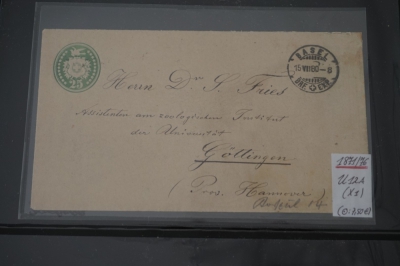 25
BASEL
15 VIII 80 – 8
BRF. EXP.
Herrn Dr. S. Fries
Assistenten am zoologischen Institut
der Universität
Göttingen
(Prov. Hannover)
1871/76
U 12A
(X1)